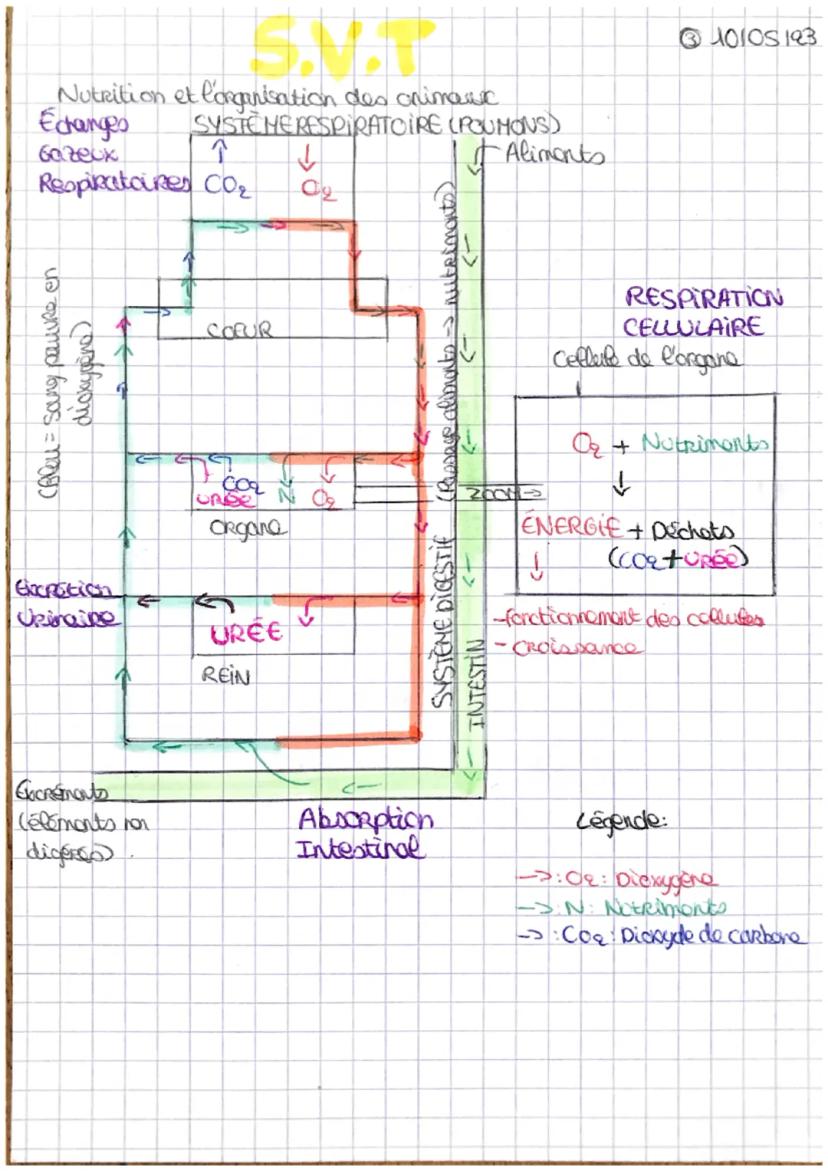 S.V.T
③ 10/05/23
Nutrition et l'organisation des animaux
Échanges
Gazeux
Respiratoires
SYSTÈME RESPIRATOIRE (POUMONS)
CO₂
O₂
Aliments
(Bleu = sang pauvre en
dioxygène)
COEUR
SYSTÈME DIGESTIF (Passage aliments -> nutriments)
INTESTIN
RESPIRATION
CELLULAIRE
Cellule de l'organe
O₂ + Nutriments
ÉNERGIE + Déchets
(CO₂ + URÉE)
-fonctionnement des cellules
-croissance
URÉE
CO₂
N
O₂
ZOOM
organe
Excrétion
Urinaire
URÉE
REIN
Excréments
(éléments non
digérés).
Absorption
Intestinal
Légende:
->: O₂: Dioxygène
->: N: Nutriments
->: CO₂: Dioxyde de carbone